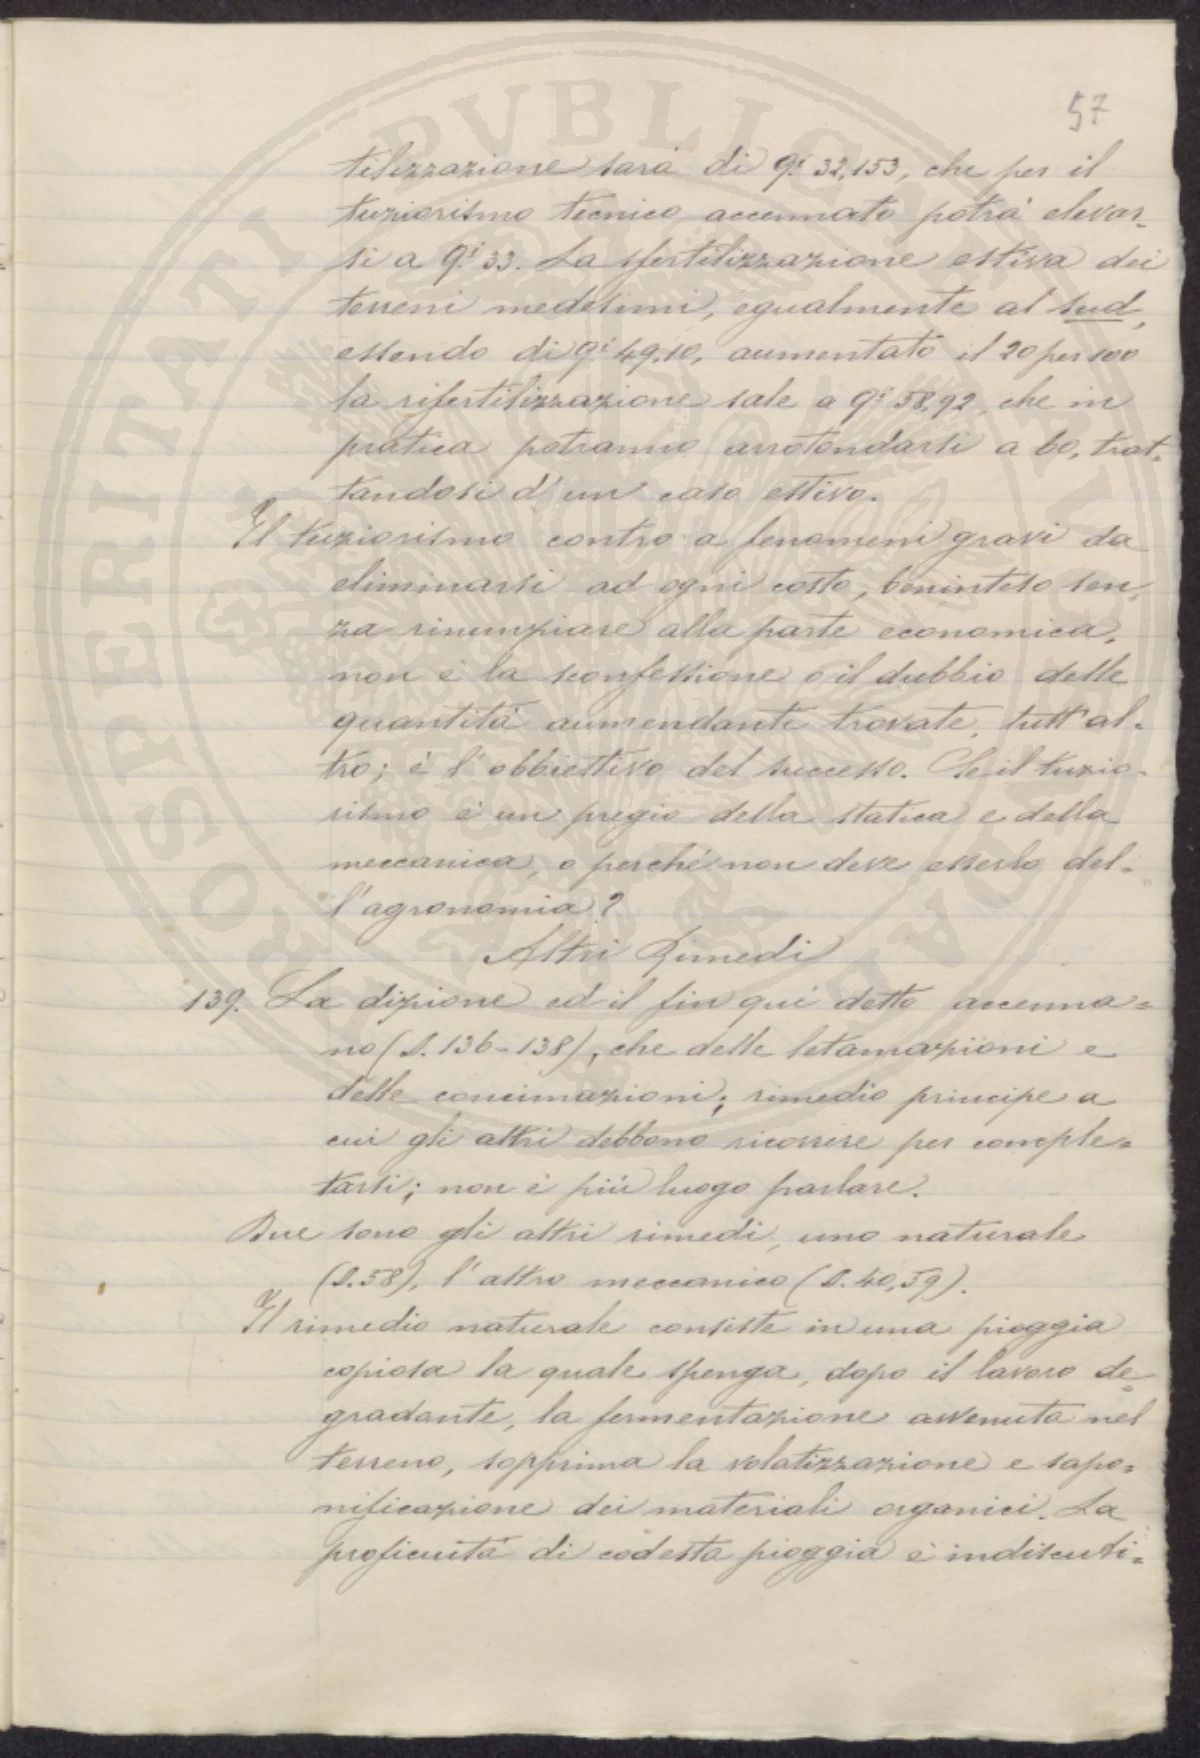 57
tilizzazione sarà di q.i 32,153, che per il
tuziorismo tecnico accennato potrà elevar-
si a q.i 33. La sfertilizzazione estiva dei
terreni medesimi, egualmente al sud,
essendo di q.i 49.10, aumentato il 20 per 100
la rifertilizzazione sale a q.i 58,92, che in
pratica potranno arrotondarsi a 60, trat-
tandosi d'un caso estivo.
Il tuziorismo contro a fenomeni gravi da
eliminarsi ad ogni costo, beninteso sen-
za rinunziare alla parte economica,
non è la sconfessione o il dubbio delle
quantità aumendanti trovate, tutt'al-
tro; è l'obbiettivo del successo. Se il tuzio-
rismo è un pregio della statica e della
meccanica, o perché non deve esserlo del-
l'agronomia?
Altri Rimedi
139. La dizione ed il fin quì detto accenna=
no (§. 136-138), che delle letamazioni e
delle concimazioni; rimedio principe a
cui gli altri debbono ricorrere per comple=
tarsi; non è più luogo parlare.
Due sono gli altri rimedi, uno naturale
(§.58), l'altro meccanico (§. 40,59).
Il rimedio naturale consiste in una pioggia
copiosa la quale spenga, dopo il lavoro de=
gradante, la fermentazione avvenuta nel
terreno, sopprima la volatizzazione e sapo=
nificazione dei materiali organici. La
proficuità di codesta pioggia è indiscuti=
PROSPERITATI PVBLICAE